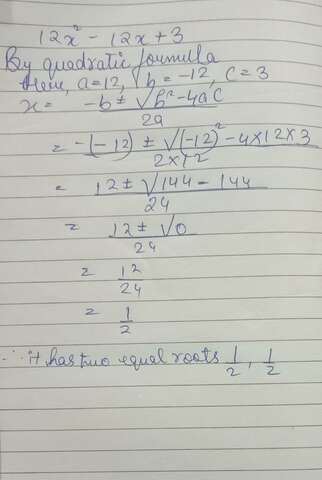 12x² - 12x + 3
By quadratic formula
Here, a=12, b = -12, c = 3
x = -b ± √b²-4ac / 2a
= -(-12) ± √(-12)² - 4×12×3 / 2×12
= 12 ± √144 - 144 / 24
= 12 ± √0 / 24
= 12 / 24
= 1 / 2
∴ it has two equal roots 1/2, 1/2